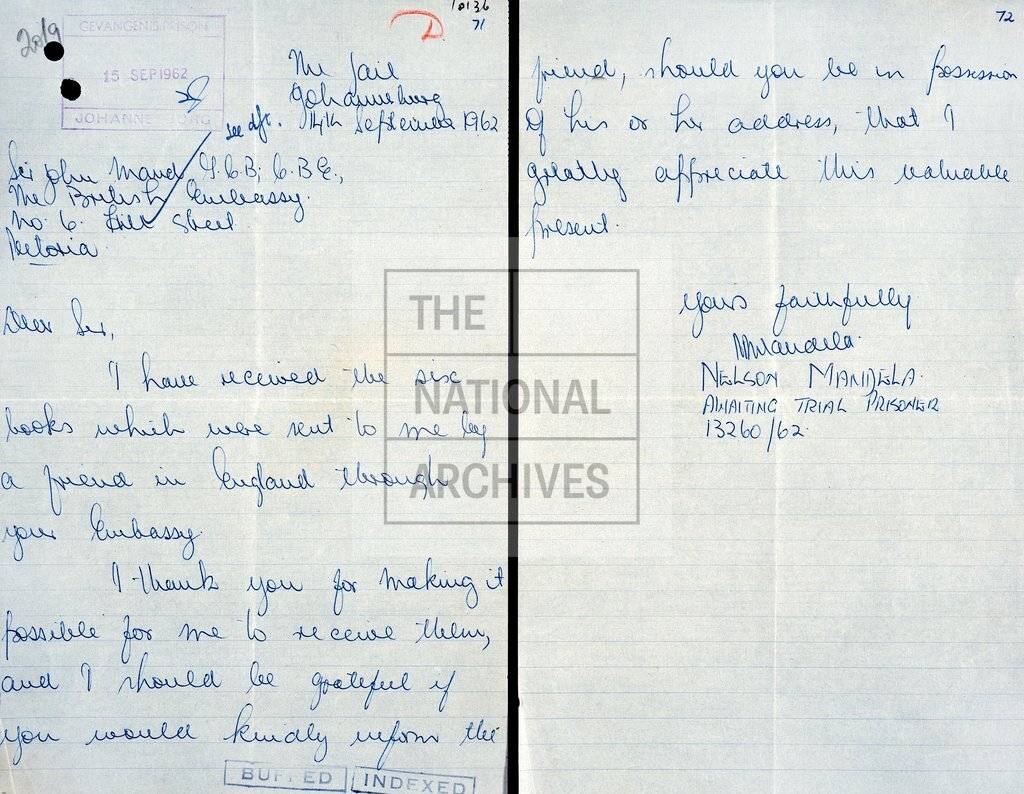 10136
71
20/9
GEVANGENIS PRISON
15 SEP 1962
JOHANNESBURG
The Jail
Johannesburg
see dft. 14th September 1962
Sir John Maud G.C.B; C.B.E.,
The British Embassy.
No. 6. Hill Street
Pretoria.
Dear Sir,
I have received the six
books which were sent to me by
a friend in England through
your Embassy.
I thank you for making it
possible for me to receive them,
and I should be grateful if
you would kindly inform the
BUFFED INDEXED
72
friend, should you be in possession
of his or her address, that I
greatly appreciate this valuable
present.
Yours faithfully
NRMandela.
NELSON MANDELA.
AWAITING TRIAL PRISONER
13260/62.
THE
NATIONAL
ARCHIVES